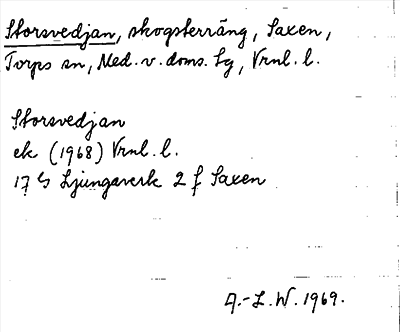 Storsvedjan, skogsterräng, Saxen,
Torps sn, Med. v. doms. lg, Vrnl. l.
Storsvedjan
ek (1968) Vrnl. l.
17 Ljungaverk 2 f Saxen
A.-L. W. 1969.